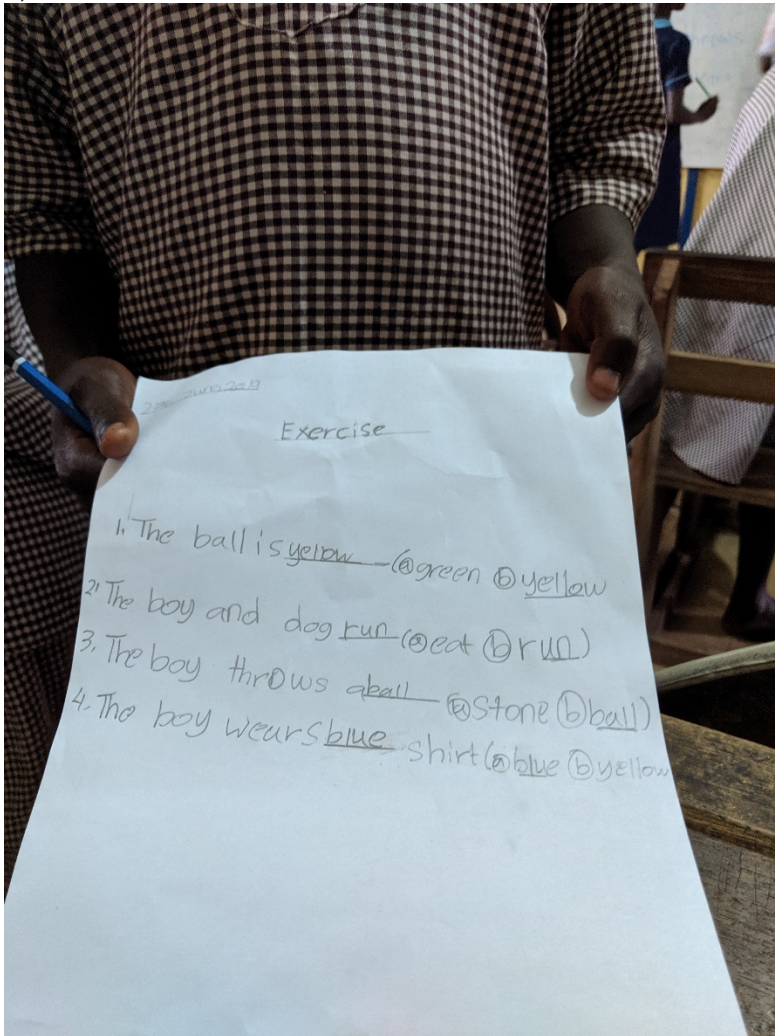 June 2019
Exercise
1. The ball is yellow (ⓐ green ⓑ yellow
2. The boy and dog run (ⓐ eat ⓑ run)
3. The boy throws a ball (ⓐ stone ⓑ ball)
4. The boy wears blue shirt (ⓐ blue ⓑ yellow